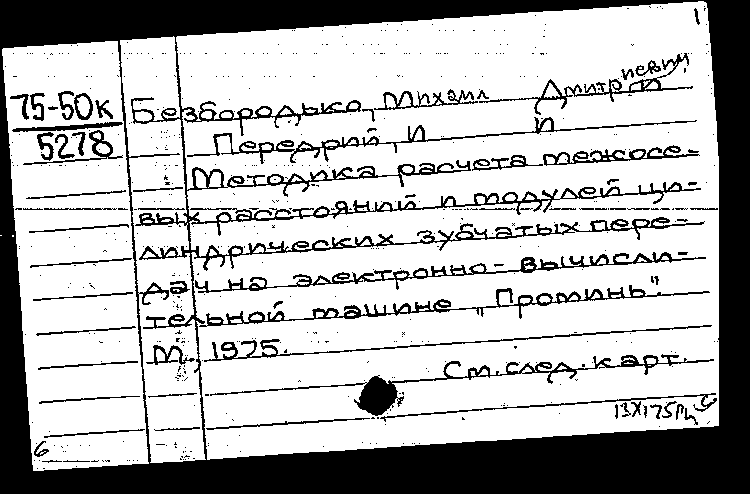 1
75-50к Безбородько, Михаил Дмитриевич
5278 Передрий, И И
Методика расчета межосе-
вых расстояний и модулей ци-
линдрических зубчатых пере-
дач на электронно-вычисли-
тельной машине „Проминь".
М., 1975.
См. след. карт.
6